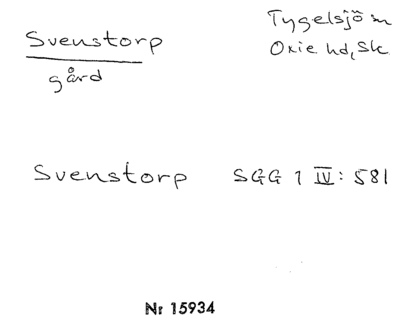 Svenstorp
gård
Tygelsjö sn
Oxie hd, Sk
Svenstorp SGG 1 IV: 581
Nr 15934